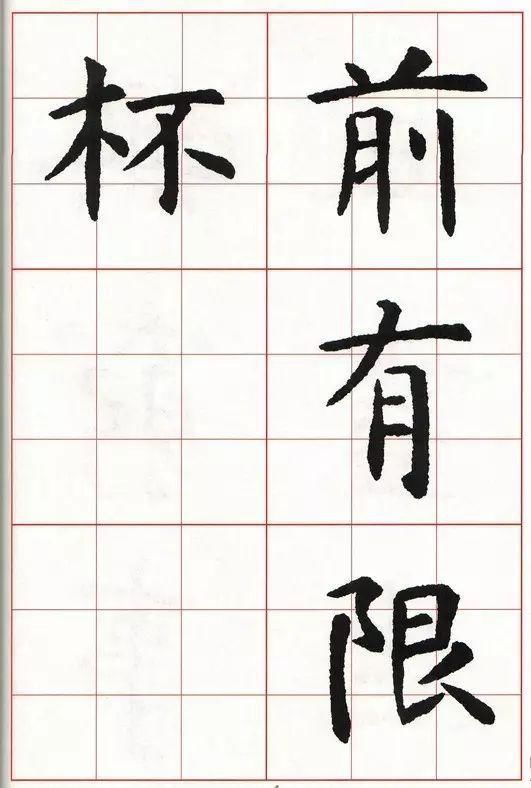 前有限
杯